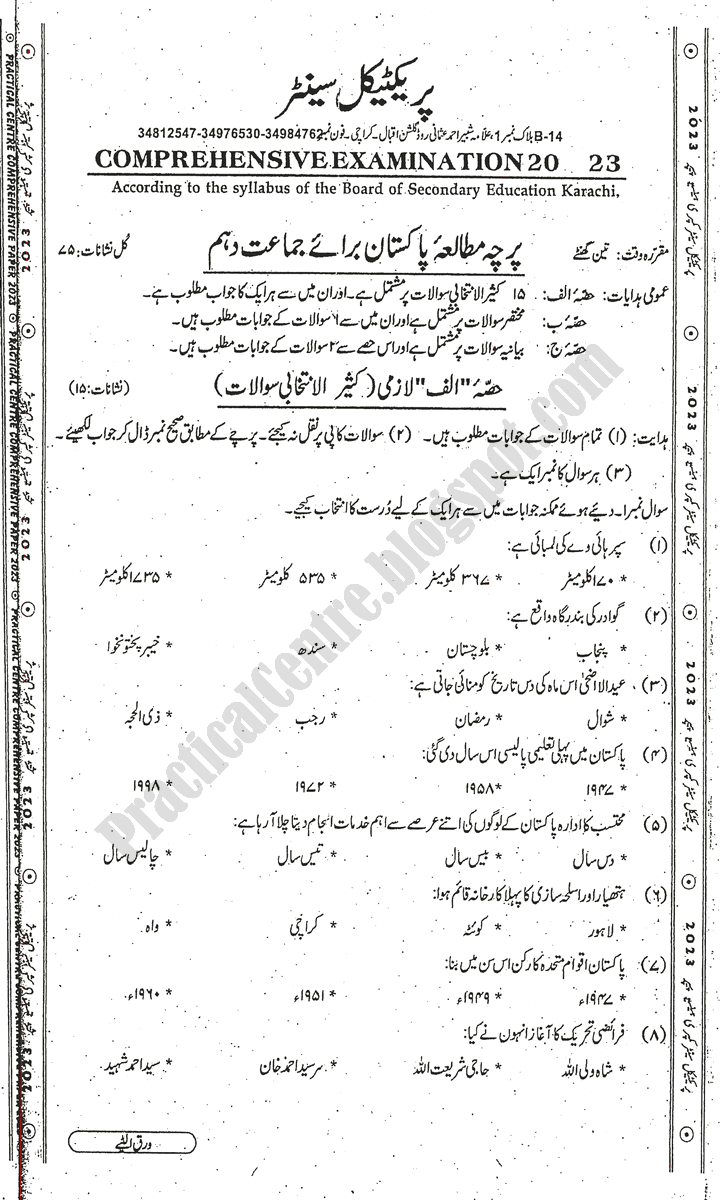 پریکٹیکل سینٹر
B-14 بلاک نمبر 1، علامہ شبیر احمد عثمانی روڈ گلشن اقبال۔ کراچی۔ فون نمبر 34984762-34976530-34812547
COMPREHENSIVE EXAMINATION 20 23
According to the syllabus of the Board of Secondary Education Karachi,
مقررہ وقت: تین گھنٹے پرچہ مطالعۂ پاکستان برائے جماعت دہم کل نشانات: ۷۵
عمومی ہدایات: حصہ الف: ۱۵ کثیر الانتخابی سوالات پر مشتمل ہے۔ اور ان میں سے ہر ایک کا جواب مطلوب ہے۔
حصہ ب: مختصر سوالات پر مشتمل ہے اور ان میں سے ۶ سوالات کے جوابات مطلوب ہیں۔
حصہ ج: بیانیہ سوالات پر مشتمل ہے اور اس حصے سے ۲ سوالات کے جوابات مطلوب ہیں۔
حصہ "الف" لازمی (کثیر الانتخابی سوالات) (نشانات: ۱۵)
ہدایت: (۱) تمام سوالات کے جوابات مطلوب ہیں۔ (۲) سوالات کاپی پر نقل نہ کیجئے۔ پرچے کے مطابق صحیح نمبر ڈال کر جواب لکھیئے۔
(۳) ہر سوال کا نمبر ایک ہے۔
سوال نمبر ۱۔ دیئے ہوئے ممکنہ جوابات میں سے ہر ایک کے لیے درست کا انتخاب کیجیے۔
(۱) سپر ہائی وے کی لمبائی ہے:
* ۱۷۰ کلومیٹر * ۳۶۷ کلومیٹر * ۵۳۵ کلومیٹر * ۱۷۳۵ کلومیٹر
(۲) گوادر کی بندرگاہ واقع ہے:
* پنجاب * بلوچستان * سندھ * خیبر پختونخوا
(۳) عید الاضحیٰ اس ماہ کی دس تاریخ کو منائی جاتی ہے:
* شوال * رمضان * رجب * ذی الحجہ
(۴) پاکستان میں پہلی تعلیمی پالیسی اس سال دی گئی:
* ۱۹۴۷ * ۱۹۵۸ * ۱۹۷۲ * ۱۹۹۸
(۵) محتسب کا ادارہ پاکستان کے لوگوں کی اتنے عرصے سے اہم خدمات انجام دیتا چلا آ رہا ہے:
* دس سال * بیس سال * تیس سال * چالیس سال
(۶) ہتھیار اور اسلحہ سازی کا پہلا کارخانہ قائم ہوا:
* لاہور * کوئٹہ * کراچی * واہ
(۷) پاکستان اقوام متحدہ کا رکن اس سن میں بنا:
* ۱۹۴۷ء * ۱۹۴۹ء * ۱۹۵۱ء * ۱۹۶۰ء
(۸) فرائضی تحریک کا آغاز انہوں نے کیا:
* شاہ ولی اللہ * حاجی شریعت اللہ * سرسید احمد خان * سید احمد شہید
ورق الٹیے
PRACTICAL CENTRE COMPREHENSIVE PAPER 2023
PracticalCentre.blogspot.com